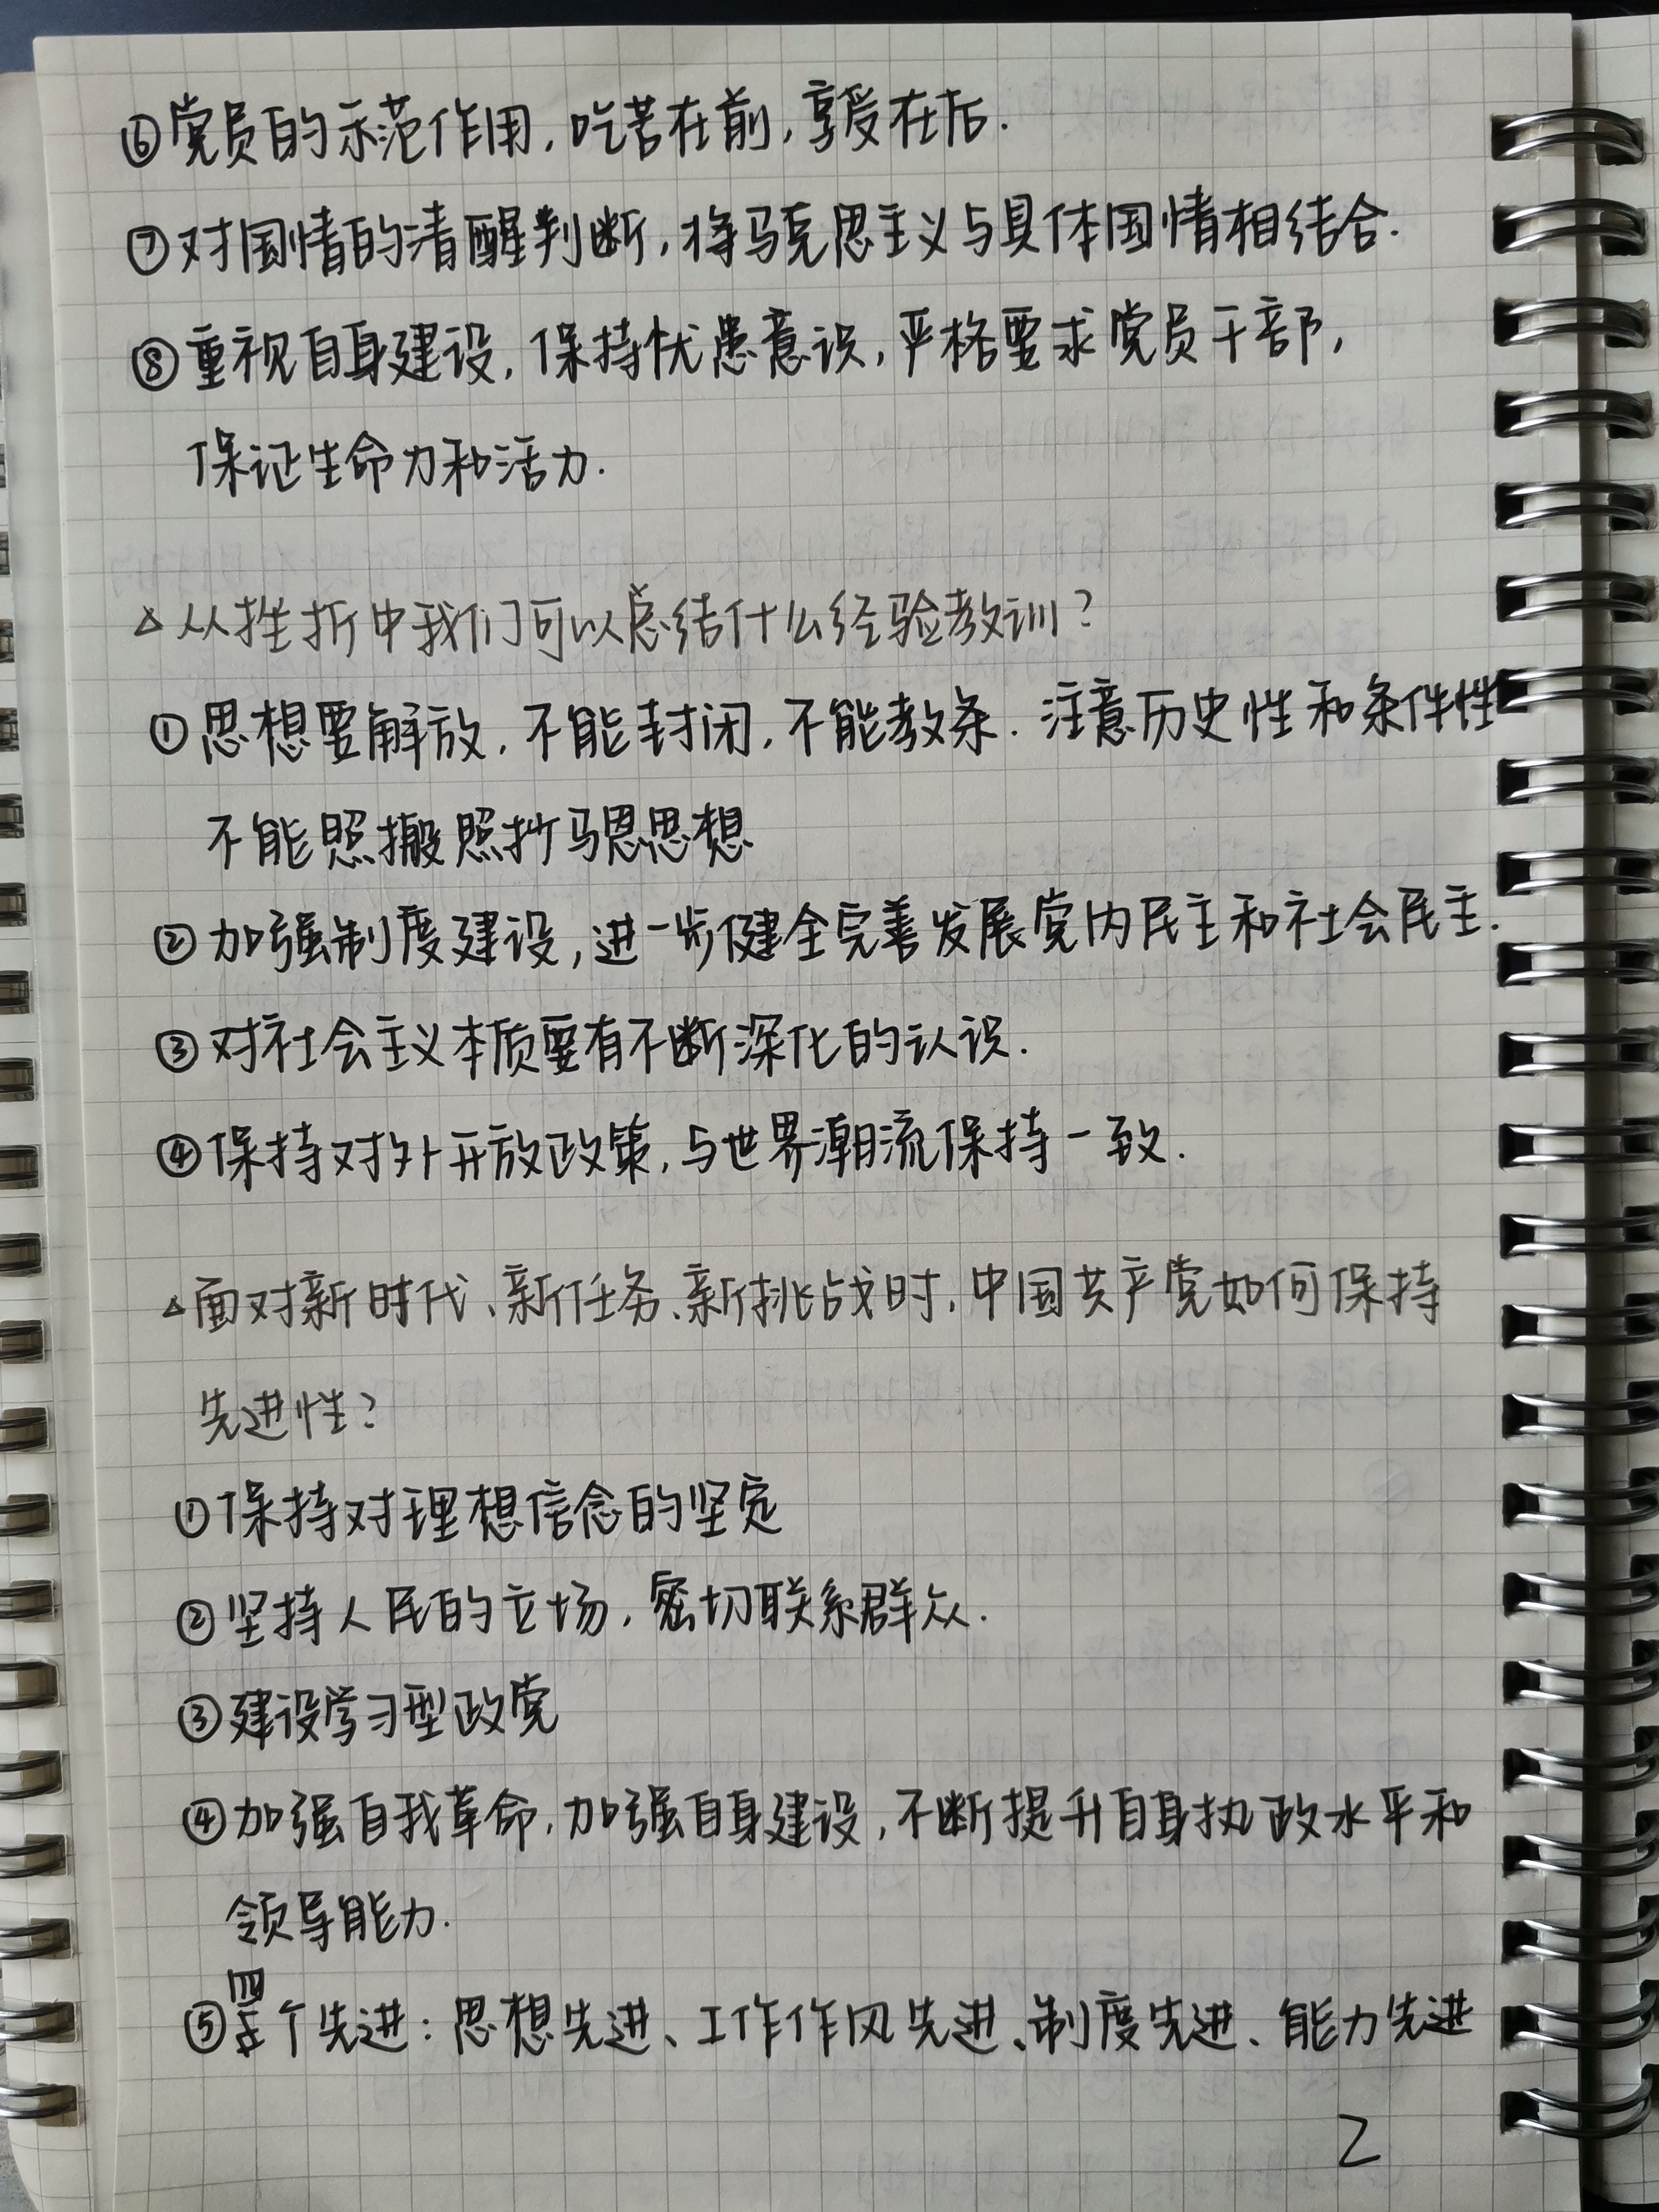 ⑥党员的示范作用,吃苦在前,享受在后.
⑦对国情的清醒判断,将马克思主义与具体国情相结合.
⑧重视自身建设,保持忧患意识,严格要求党员干部,
保证生命力和活力.
△从挫折中我们可以总结什么经验教训?
①思想要解放,不能封闭,不能教条.注意历史性和条件性
不能照搬照抄马恩思想
②加强制度建设,进一步健全完善发展党内民主和社会民主.
③对社会主义本质要有不断深化的认识.
④保持对外开放政策,与世界潮流保持一致.
△面对新时代、新任务、新挑战时,中国共产党如何保持
先进性?
①保持对理想信念的坚定
②坚持人民的立场,密切联系群众.
③建设学习型政党
④加强自我革命,加强自身建设,不断提升自身执政水平和
领导能力.
⑤四个先进:思想先进、工作作风先进、制度先进、能力先进
2